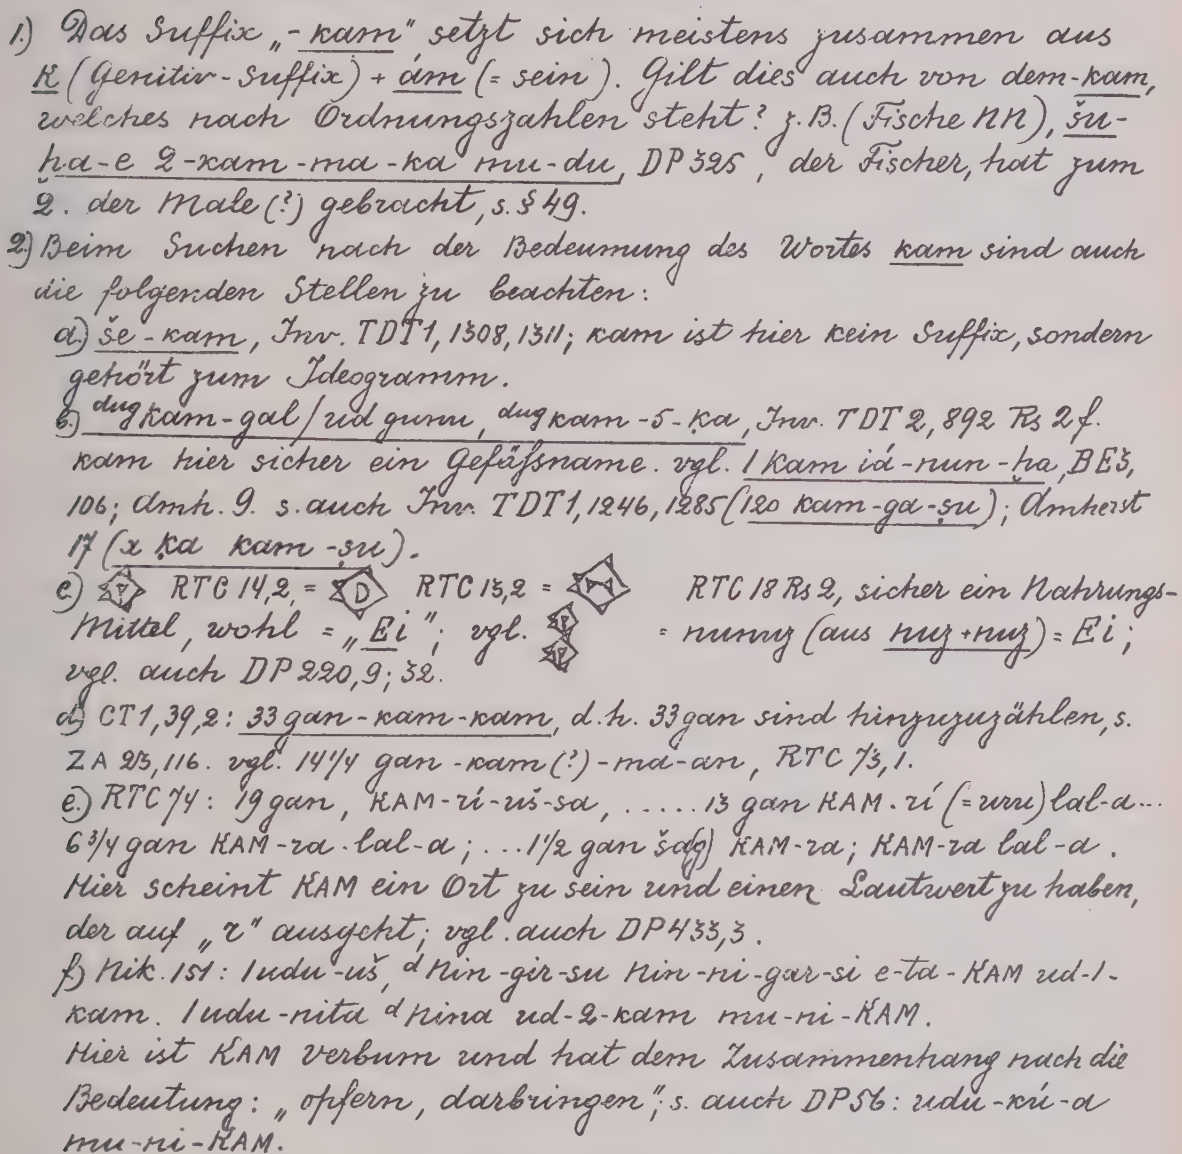 1.) Das Suffix „-kam" setzt sich meistens zusammen aus
k (Genitiv-Suffix) + ám (= sein). Gilt dies auch von dem -kam,
welches nach Ordnungszahlen steht? z.B. (Fische NN), šu-
ḫa-e 2-kam-ma-ka mu-du, DP 325, der Fischer, hat zum
2. der Male (?) gebracht, s. § 49.
2.) Beim Suchen nach der Bedeumung des Wortes kam sind auch
die folgenden Stellen zu beachten:
a.) še-kam, Inv. TDT 1, 1308, 1311; kam ist hier kein Suffix, sondern
gehört zum Ideogramm.
b.) dug kam-gal / ud gunu, dug kam-5-ḳa, Inv. TDT 2, 892 Rs 2 f.
kam hier sicher ein Gefäßname. vgl. 1 kam iá-nun-ḫa, BE3,
106; Amh. 9. s. auch Inv. TDT 1, 1246, 1285 (120 kam-ga-ṣu); Amherst
17 (x ḳa kam-ṣu).
c.) RTC 14,2, = RTC 15,2 = RTC 18 Rs 2, sicher ein Nahrungs-
Mittel, wohl = „Ei"; vgl. = nunuz (aus nuz+nuz) = Ei;
vgl. auch DP 220,9; 32.
d.) CT 1, 39, 2: 33 gan-kam-kam, d.h. 33 gan sind hinzuzuzählen, s.
ZA 25, 116. vgl. 14 1/4 gan-kam (?)-ma-an, RTC 73, 1.
e.) RTC 74: 19 gan, KAM-rí-uš-sa, ..... 13 gan KAM.rí (= uru) lal-a...
6 3/4 gan KAM-ra.lal-a; ... 1 1/2 gan ša(g) KAM-ra; KAM-ra lal-a.
Hier scheint KAM ein Ort zu sein und einen Lautwert zu haben,
der auf „r" ausgeht; vgl. auch DP 433,3.
f.) Nik. 151: 1 udu-uš, d Nin-gir-su Nin-ni-gar-si e-ta-KAM ud-1-
kam. 1 udu-nita d Nina ud-2-kam mu-ni-KAM.
Hier ist KAM Verbum und hat dem Zusammenhang nach die
Bedeutung: „opfern, darbringen"; s. auch DP 56: udu-kú-a
mu-ni-KAM.